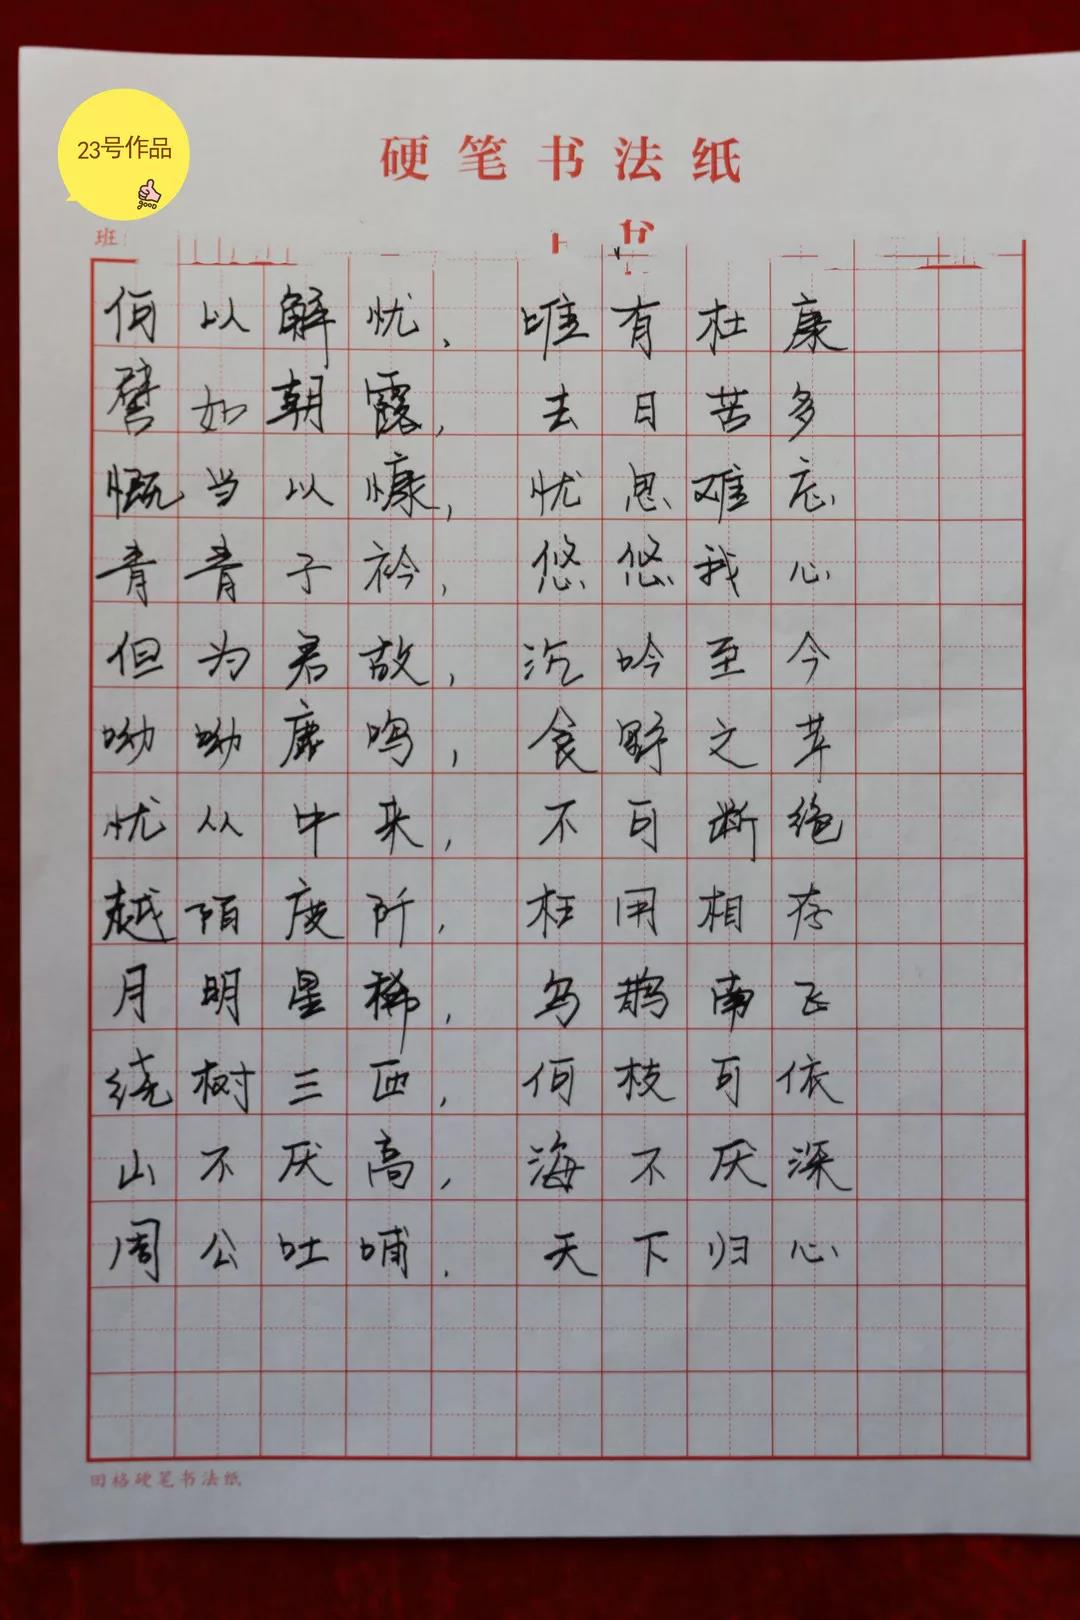 23号作品
good
硬笔书法纸
班
何以解忧、唯有杜康
譬如朝露，去日苦多
慨当以慷，忧思难忘
青青子衿，悠悠我心
但为君故，沉吟至今
呦呦鹿鸣，食野之苹
忧从中来，不可断绝
越陌度阡，枉用相存
月明星稀，乌鹊南飞
绕树三匝，何枝可依
山不厌高，海不厌深
周公吐哺．天下归心
田格硬笔书法纸